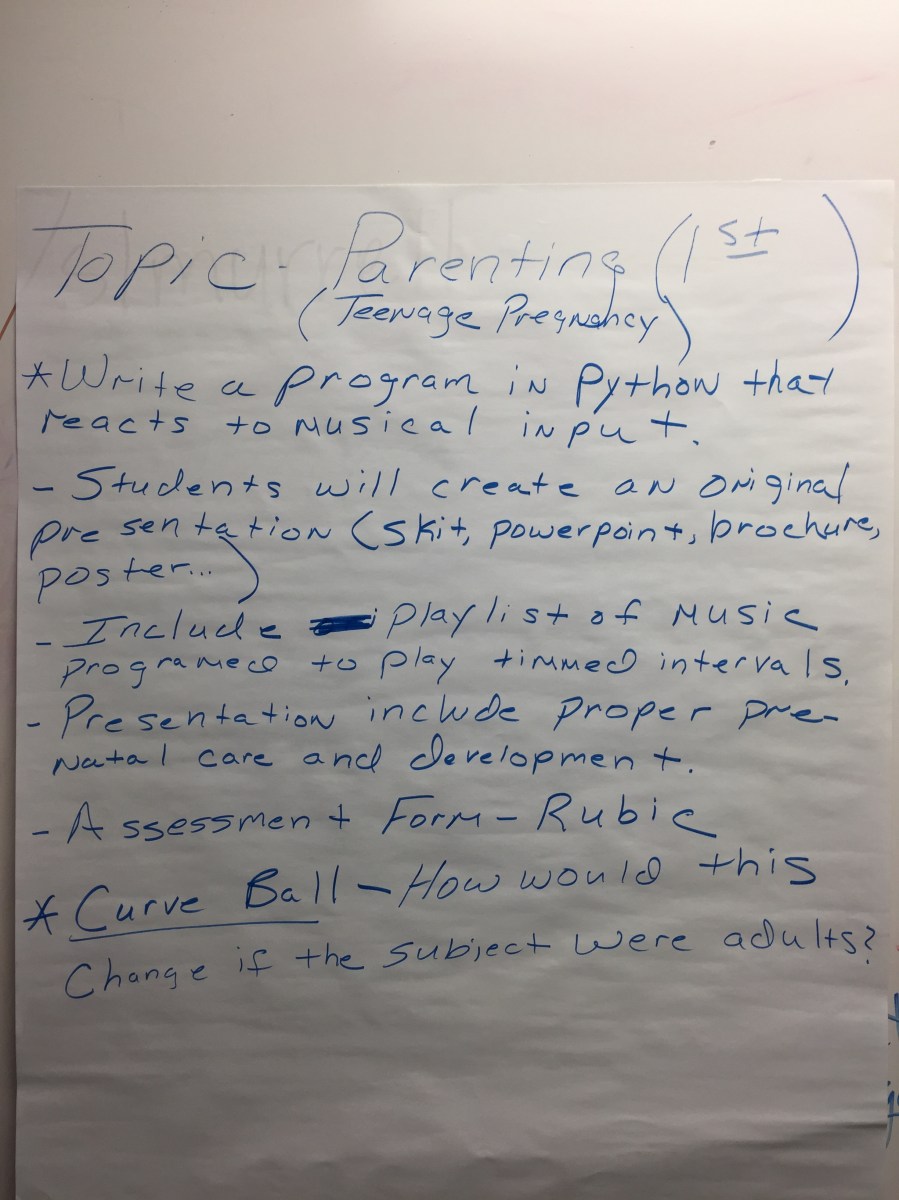 Topic - Parenting (1st)
(Teenage Pregnancy)
* Write a program in Python that
reacts to musical input.
- Students will create an original
presentation (skit, powerpoint, brochure,
poster...)
- Include playlist of music
programed to play timmed intervals.
- Presentation include proper pre-
natal care and development.
- Assessment Form - Rubic
* Curve Ball - How would this
Change if the subject were adults?